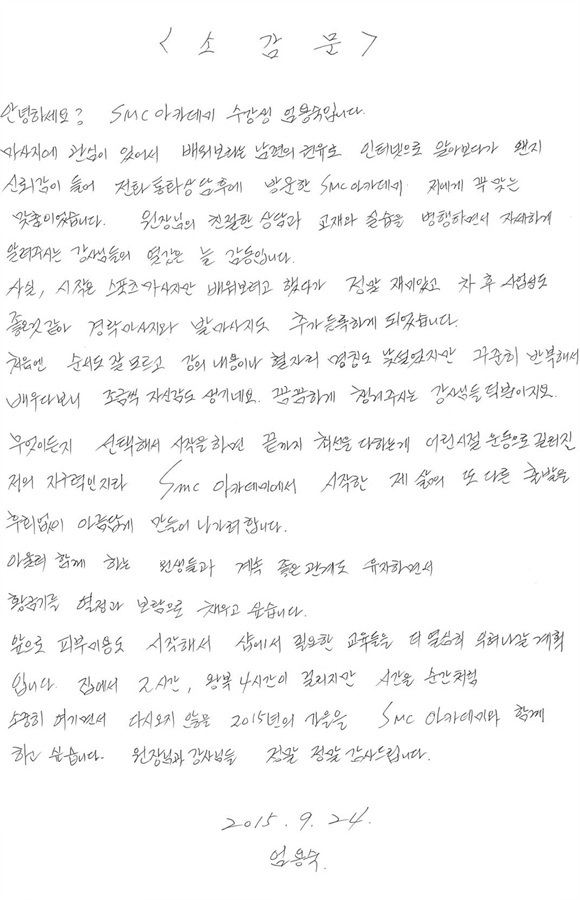 < 소 감 문 >
안녕하세요? SMC아카데미 수강생 엄용숙입니다.
마사지에 관심이 있어서 배워보라는 남편의 권유로 인터넷으로 알아보다가 왠지
신뢰감이 들어 전화통화상담후에 방문한 SMC아카데미. 저에게 꼭 맞는
맞춤이었습니다. 원장님의 친절한 상담과 교재와 실습을 병행하면서 자세하게
알려주시는 강사님들의 열강은 늘 감동입니다.
사실, 시작은 스포츠마사지만 배워보려고 했다가 정말 재미있고 차후 사업성도
좋은것 같아 경락마사지와 발마사지도 추가등록하게 되었습니다.
처음엔 순서도 잘 모르고 강의 내용이나 혈자리 명칭도 낯설었지만 꾸준히 반복해서
배우다보니 조금씩 자신감도 생기네요. 꼼꼼하게 챙겨주시는 강사님들 덕분이지요.
무엇이든지 선택해서 시작을 하면 끝까지 최선을 다하는게 어린시절 운동으로 길러진
저의 지구력인지라 SMC 아카데미에서 시작한 제 삶의 또 다른 출발을
후회없이 아름답게 만들어 나가려 합니다.
아울러 함께 하는 원생들과 계속 좋은 관계도 유지하면서
황금기를 열정과 보람으로 채우고 싶습니다.
앞으로 피부미용도 시작해서 샵에서 필요한 교육들을 더 열심히 익혀나갈 계획
입니다. 집에서 2시간, 왕복 4시간이 걸리지만 시간을 순간처럼
소중히 여기면서 다시오지 않을 2015년의 가을을 SMC 아카데미와 함께
하고 싶습니다. 원장님과 강사님들 정말 정말 감사드립니다.
2015. 9. 24.
엄용숙.